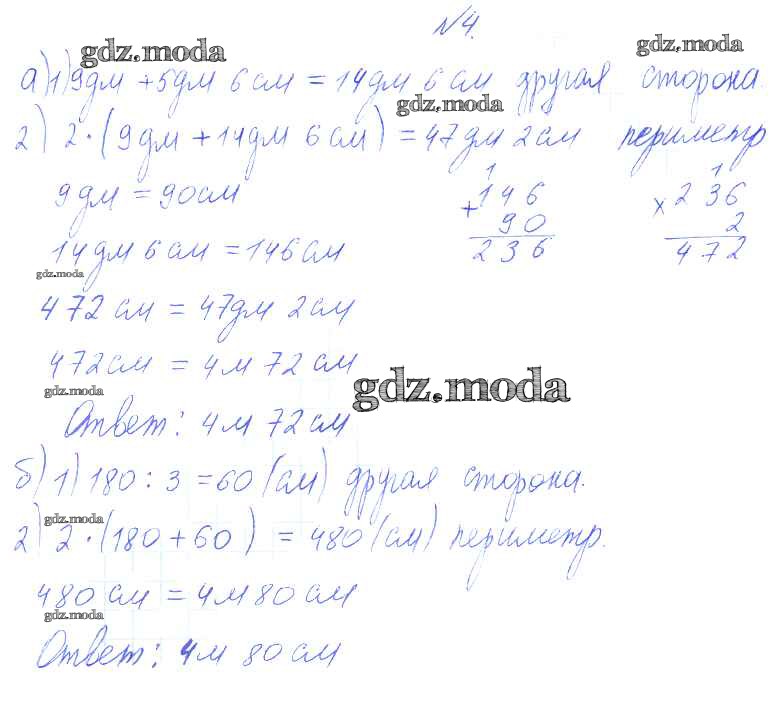 №4.
gdz.moda
gdz.moda
а) 1) 9дм + 5дм 6 см = 14дм 6 см другая сторона.
gdz.moda
2) 2·(9дм + 14дм 6 см) = 47дм 2см периметр
9дм = 90см
14дм 6 см = 146см
gdz.moda
472 см = 47дм 2см
472см = 4м 72 см
gdz.moda
Ответ: 4м 72см
1
+ 146
90
236
1
× 236
2
472
gdz.moda
б) 1) 180 : 3 = 60 (см) другая сторона.
gdz.moda
2) 2·(180 + 60) = 480 (см) периметр.
480 см = 4м 80 см
gdz.moda
Ответ: 4м 80см